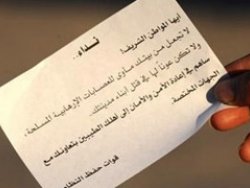 نداء ..
أيها المواطن الشريف:
لا تجعل من بيتك مأوى للعصابات الإرهابية المسلحة،
ولا تكن عوناً لها في قتل أبناء مدينتك.
ساهم في إعادة الأمن والأمان إلى أهلك الطيبين بتعاونك مع
الجهات المختصة.
قوات حفظ النظام